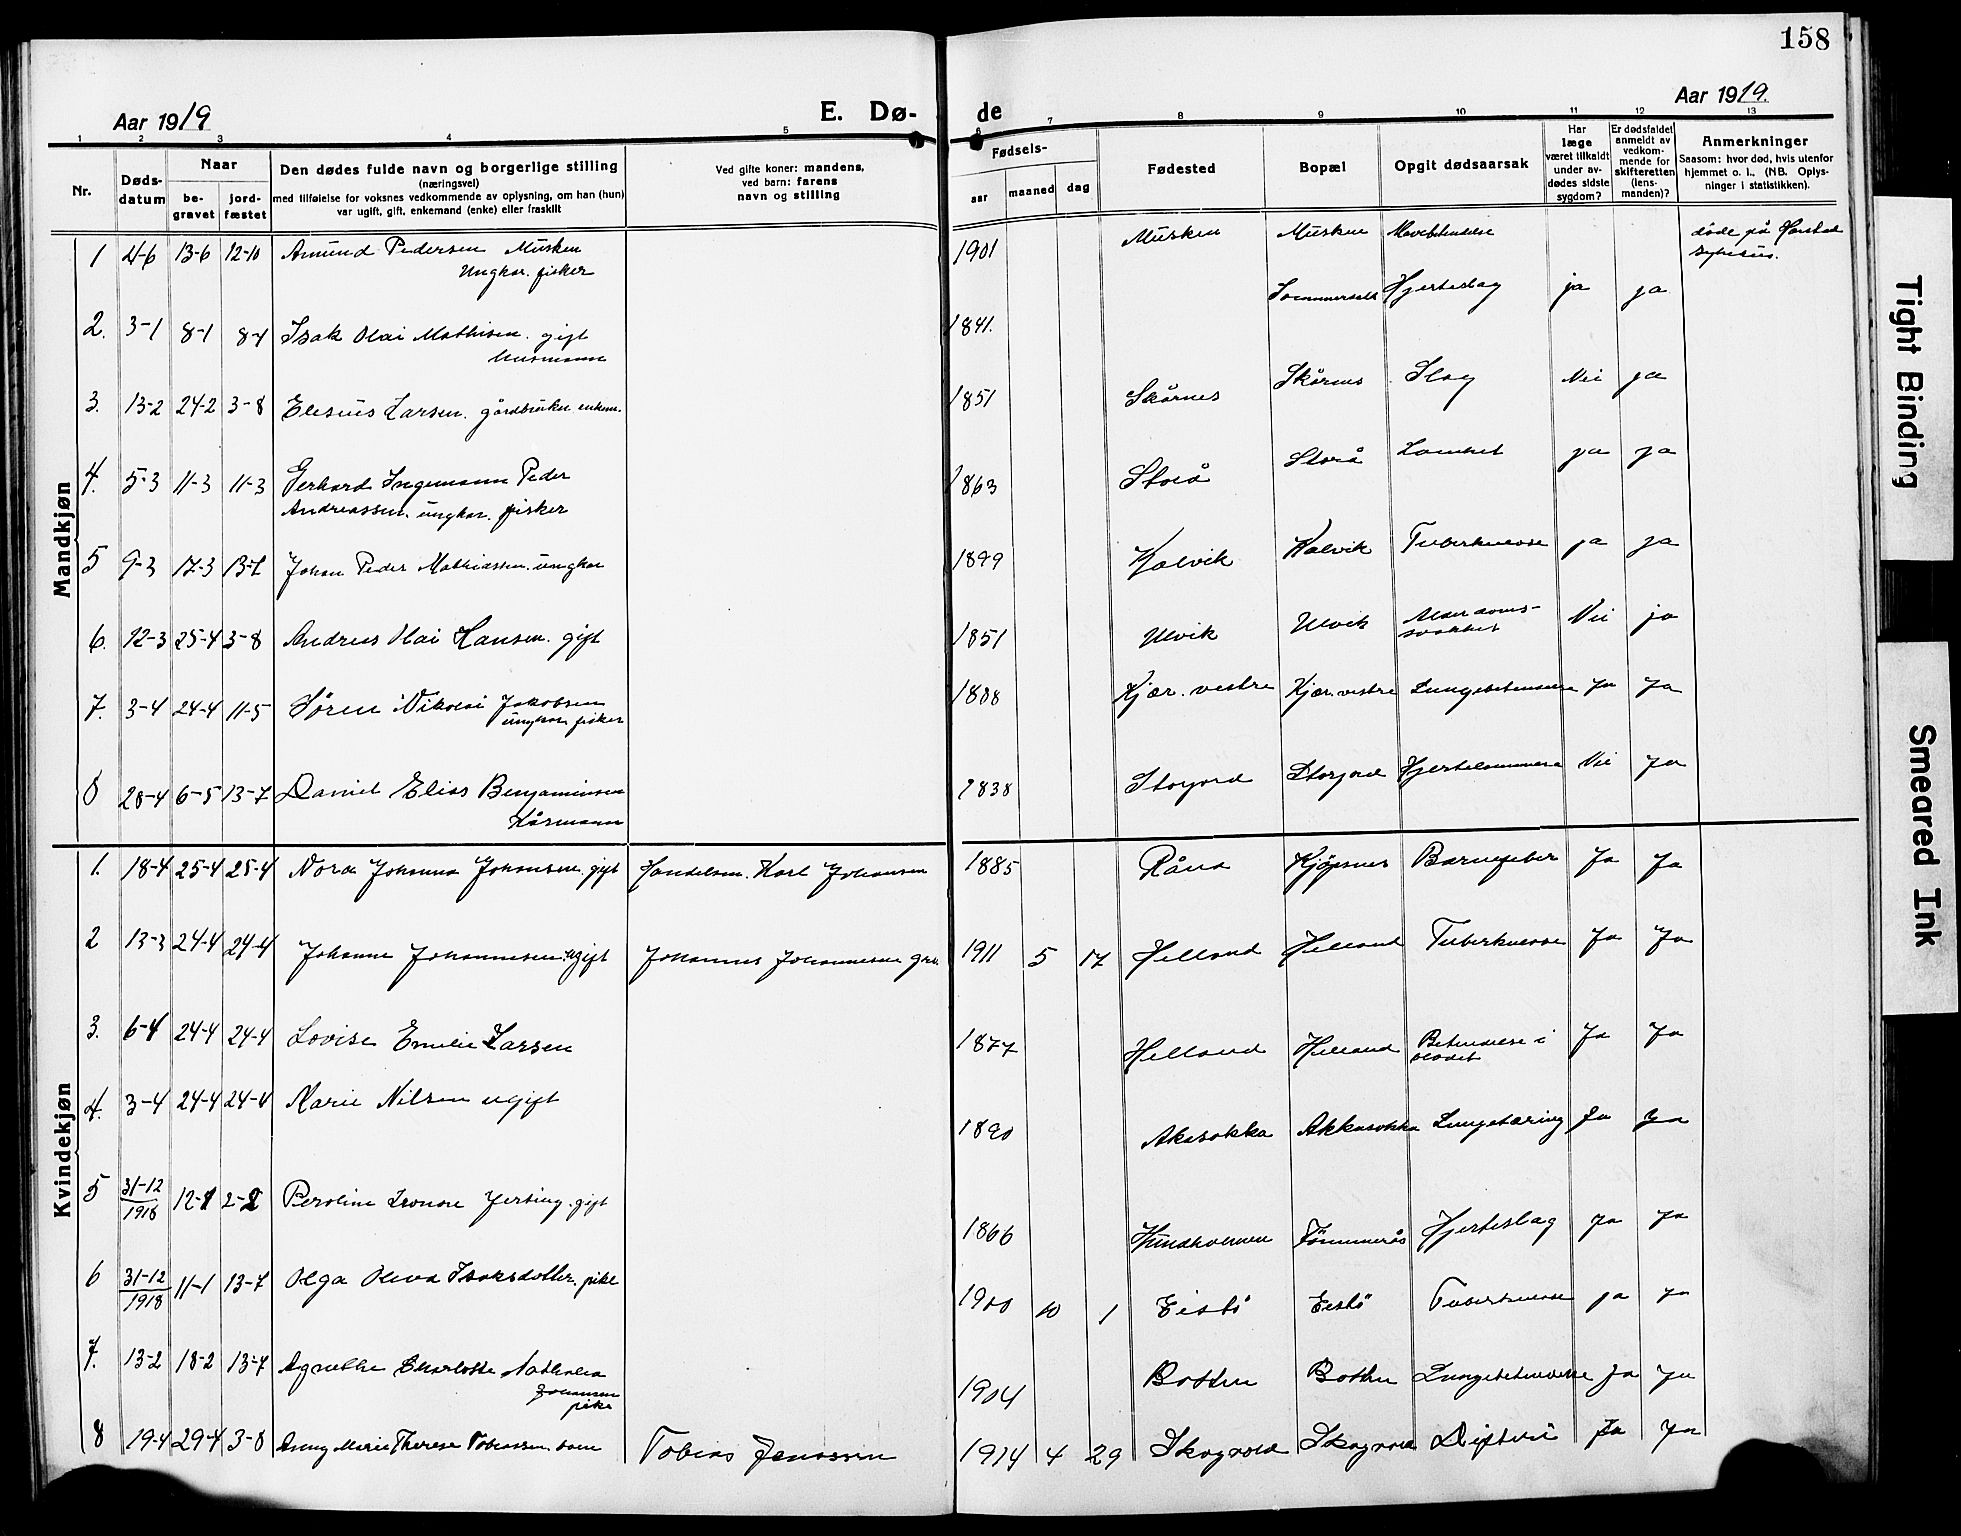 158
Aar 1919
E. Dø-
de
Aar 1919.
1 2 3 4 5 6 7 8 9 10 11 12 13
Nr.
Døds-
datum
Naar
be-
gravet
jord-
fæstet
Den dødes fulde navn og borgerlige stilling
(næringsvei)
med tilføielse for voksnes vedkommende av oplysning, om han (hun)
var ugift, gift, enkemand (enke) eller fraskilt
Ved gifte koner: mandens,
ved barn: farens
navn og stilling
Fødsels-
aar
maaned
dag
Fødested
Bopæl
Opgit dødsaarsak
Har
læge
været tilkaldt
under av-
dødes sidste
sygdom?
Er dødsfaldet
anmeldt av
vedkom-
mende for
skifteretten
(lens-
manden)?
Anmerkninger
Saasom: hvor død, hvis utenfor
hjemmet o. l.. (NB. Oplys-
ninger i statistikken).
Mandkjøn
1 4-6 13-6 12-10 Amund Pedersen Musken 1901 Musken Musken døde på Harstad
Ungkar. fisker sykehus.
2. 3-1 8-1 8-1 Isak Olai Mathisen. gift 1841. Hjerteslag ja ja
Husmann
3. 13-2 24-2 3-8 Elesius Larsen. gårdbruker enkem. 1851 Skårnes Skårnes Slag Nei ja
4. 5-3 11-3 11-3 Gerhard Ingemann Peder 1863 Storå Storå Lamhet ja ja
Andreassen. ungkar. fisker
5 9-3 17-3 13-7 Johan Peder Mathiassen. ungkar 1899 Kalvik Kalvik Tuberkulose ja ja
6. 12-3 25-4 3-8 Andreas Olai Hansen. gift 1851 Ulvik Ulvik Alderdoms-
svakhet Nei ja
7. 3-4 24-4 11-5 Søren Nikolai Jakobsen 1888 Kjær. vestre Kjær. vestre Lungebetennelse Ja Ja
ungkar fisker
8 28-4 6-5 13-7 Daniel Elias Benjaminsen 1838 Storjord Storjord Hjertelammelse Nei Ja
Kårmann
Kvindekjøn
1. 18-4 25-4 25-4 Nora Johanna Johansen. gift Handelsm. Karl Johansen 1885 Råna Kjøpsnes Barnefeber Ja Ja
2 13-3 24-4 24-4 Johanne Johannesen. ugift Johannes Johannesen 1911 5 17 Helland Helland Tuberkulose Ja Ja
3. 6-4 24-4 24-4 Lovise Emelie Larsen 1877 Helland Helland Betendelse i
blodet Ja Ja
4. 3-4 24-4 24-4 Marie Nilsen ugift 1890 Akasokka Akkasokka Lungetæring Ja Ja
5 31-12
1918 12-1 Peroline Leonore gift 1866 Hundholmen Tømmerås Hjerteslag Ja Ja
6 31-12
1918 11-1 13-7 Olga Oleva Isaksdatter. pike 1900 10 1 Tuberkulose ja Ja
7. 13-2 18-2 13-7 Agnethe Charlotte Nathalia 1904 Botten Botten Lungebetennelse Ja Ja
Johansen
pike
8 19-4 29-4 3-8 Marie Therese Tobiassen. barn Tobias Jenassen 1914 4 29 Skogvold Skogvold Difteri Ja Ja
Tight Binding
Smeared Ink